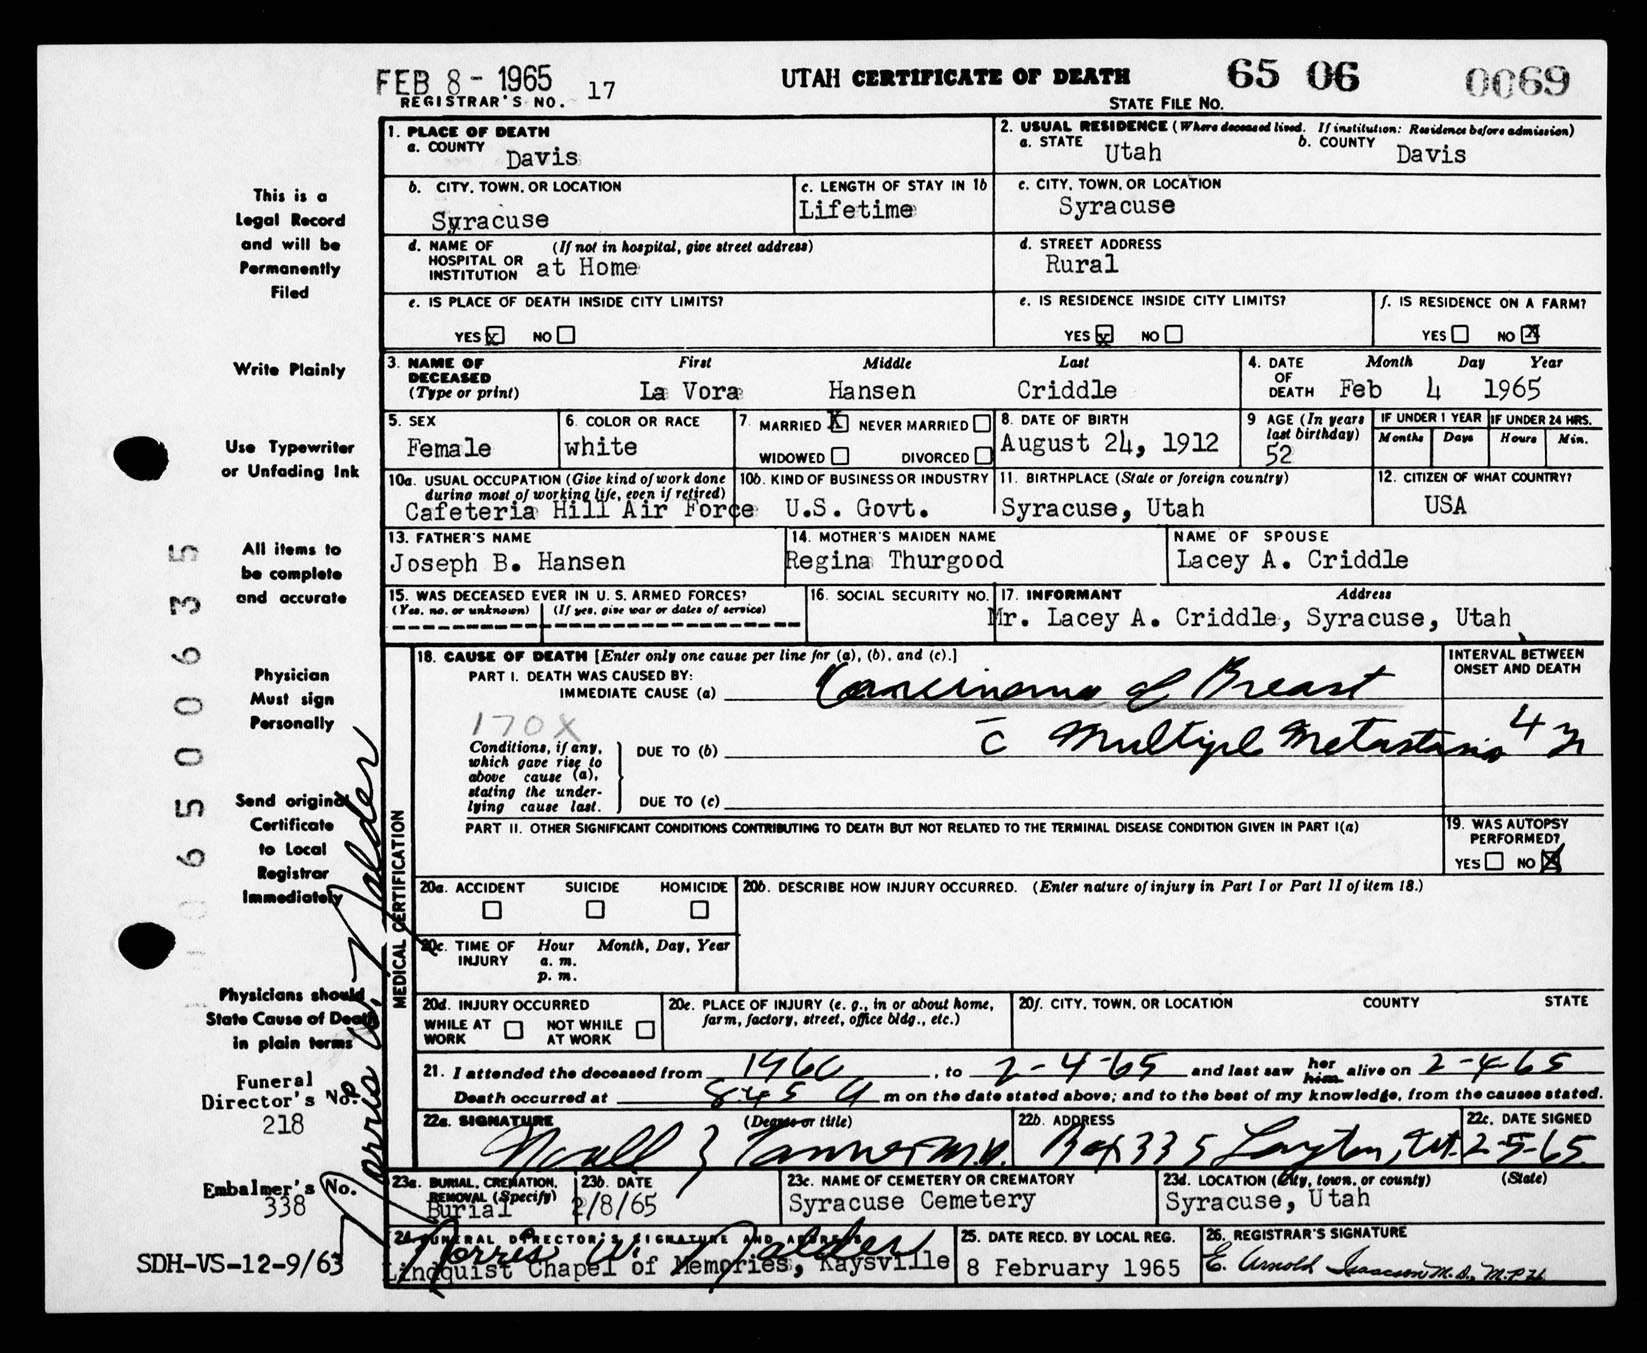 FEB 8 - 1965
REGISTRAR'S NO. 17
UTAH CERTIFICATE OF DEATH
65 06 0069
STATE FILE NO.
This is a
Legal Record
and will be
Permanently
Filed
Write Plainly
Use Typewriter
or Unfading Ink
All items to
be complete
and accurate
Physician
Must sign
Personally
Send original
Certificate
to Local
Registrar
Immediately
Physicians should
State Cause of Death
in plain terms
Funeral
Director's No.
218
Embalmer's No.
338
SDH-VS-12-9/63
Norris W. Nalder
0 6 5 0 0 6 3 5
1. PLACE OF DEATH
a. COUNTY Davis
2. USUAL RESIDENCE (Where deceased lived. If institution: Residence before admission)
a. STATE Utah b. COUNTY Davis
b. CITY, TOWN, OR LOCATION
Syracuse
c. LENGTH OF STAY IN 1b
Lifetime
c. CITY, TOWN, OR LOCATION
Syracuse
d. NAME OF (If not in hospital, give street address)
HOSPITAL OR
INSTITUTION at Home
d. STREET ADDRESS
Rural
e. IS PLACE OF DEATH INSIDE CITY LIMITS?
YES x NO
e. IS RESIDENCE INSIDE CITY LIMITS?
YES x NO
f. IS RESIDENCE ON A FARM?
YES NO x
3. NAME OF First Middle Last
DECEASED
(Type or print) La Vora Hansen Criddle
4. DATE Month Day Year
OF
DEATH Feb 4 1965
5. SEX
Female
6. COLOR OR RACE
white
7 MARRIED X NEVER MARRIED
WIDOWED DIVORCED
8. DATE OF BIRTH
August 24, 1912
9 AGE (In years
last birthday)
52
IF UNDER 1 YEAR IF UNDER 24 HRS.
Months Days Hours Min.
10a. USUAL OCCUPATION (Give kind of work done
during most of working life, even if retired)
Cafeteria Hill Air Force
10b. KIND OF BUSINESS OR INDUSTRY
U.S. Govt.
11. BIRTHPLACE (State or foreign country)
Syracuse, Utah
12. CITIZEN OF WHAT COUNTRY?
USA
13. FATHER'S NAME
Joseph B. Hansen
14. MOTHER'S MAIDEN NAME
Regina Thurgood
NAME OF SPOUSE
Lacey A. Criddle
15. WAS DECEASED EVER IN U. S. ARMED FORCES?
(Yes, no, or unknown) (If yes, give war or dates of service)
16. SOCIAL SECURITY NO.
17. INFORMANT Address
Mr. Lacey A. Criddle, Syracuse, Utah
MEDICAL CERTIFICATION
18. CAUSE OF DEATH [Enter only one cause per line for (a), (b), and (c).]
INTERVAL BETWEEN
ONSET AND DEATH
PART I. DEATH WAS CAUSED BY:
IMMEDIATE CAUSE (a) Carcinoma of Breast
170X
Conditions, if any,
which gave rise to
above cause (a),
stating the under-
lying cause last.
DUE TO (b) c̄ Multiple Metastasis 4 yr
DUE TO (c)
PART II. OTHER SIGNIFICANT CONDITIONS CONTRIBUTING TO DEATH BUT NOT RELATED TO THE TERMINAL DISEASE CONDITION GIVEN IN PART I(a)
19. WAS AUTOPSY
PERFORMED?
YES NO X
20a. ACCIDENT SUICIDE HOMICIDE
20b. DESCRIBE HOW INJURY OCCURRED. (Enter nature of injury in Part I or Part II of item 18.)
20c. TIME OF Hour Month, Day, Year
INJURY a. m.
p. m.
20d. INJURY OCCURRED
WHILE AT WORK NOT WHILE AT WORK
20e. PLACE OF INJURY (e. g., in or about home,
farm, factory, street, office bldg., etc.)
20f. CITY, TOWN, OR LOCATION COUNTY STATE
21. I attended the deceased from 1960, to 2-4-65 and last saw her him alive on 2-4-65
Death occurred at 8:45 A m on the date stated above; and to the best of my knowledge, from the causes stated.
22a. SIGNATURE (Degree or title)
Noall Z Tanner M.D.
22b. ADDRESS
Box 335 Layton, Ut.
22c. DATE SIGNED
2-5-65
23a. BURIAL, CREMATION,
REMOVAL (Specify)
Burial
23b. DATE
2/8/65
23c. NAME OF CEMETERY OR CREMATORY
Syracuse Cemetery
23d. LOCATION (City, town, or county) (State)
Syracuse, Utah
24 FUNERAL DIRECTOR'S SIGNATURE AND ADDRESS
Norris W. Nalder
Lindquist Chapel of Memories, Kaysville
25. DATE RECD. BY LOCAL REG.
8 February 1965
26. REGISTRAR'S SIGNATURE
E. Arnold Isaacson M.D., M.P.H.